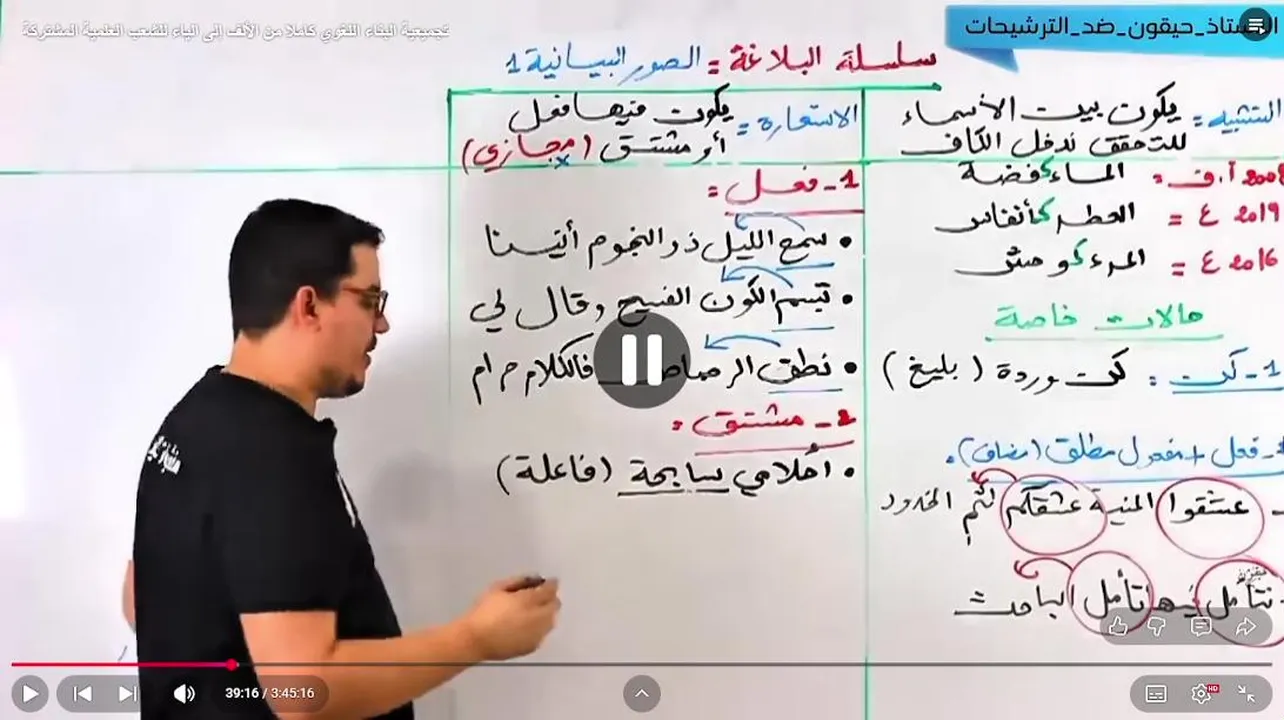 تجميعية البناء اللغوي كاملا من الألف إلى الياء للشعب العلمية المشتركة
حيقون_ضد_الترشيحات
سلسلة البلاغة = الصور البيانية 1
التشبيه = يكون بين الأسماء
للتحقق ندخل الكاف
2008 أ.ف = الماء كفضة
2019 ع = العطر كأنفاس
2016 ع = المرء كوحش
حالات خاصة
1 - كن = كن وردة (بليغ)
2 - فعل + مفعول مطلق (مضاف).
- عشقوا المنية عشقكم لثم الخدود
- نتأمل فيها تأمل الباحث =
الاستعارة = يكون فيها فعل
أو مشتق (مجازي)
1 - فعل =
• سمع الليل ذو النجوم أنينا
• تبسم الكون الفسيح وقال لي
• نطق الرصاص فالكلام حرام
2 - مشتق =
• أحلامي سابحة (فاعلة)
39:16 / 3:45:16
HD